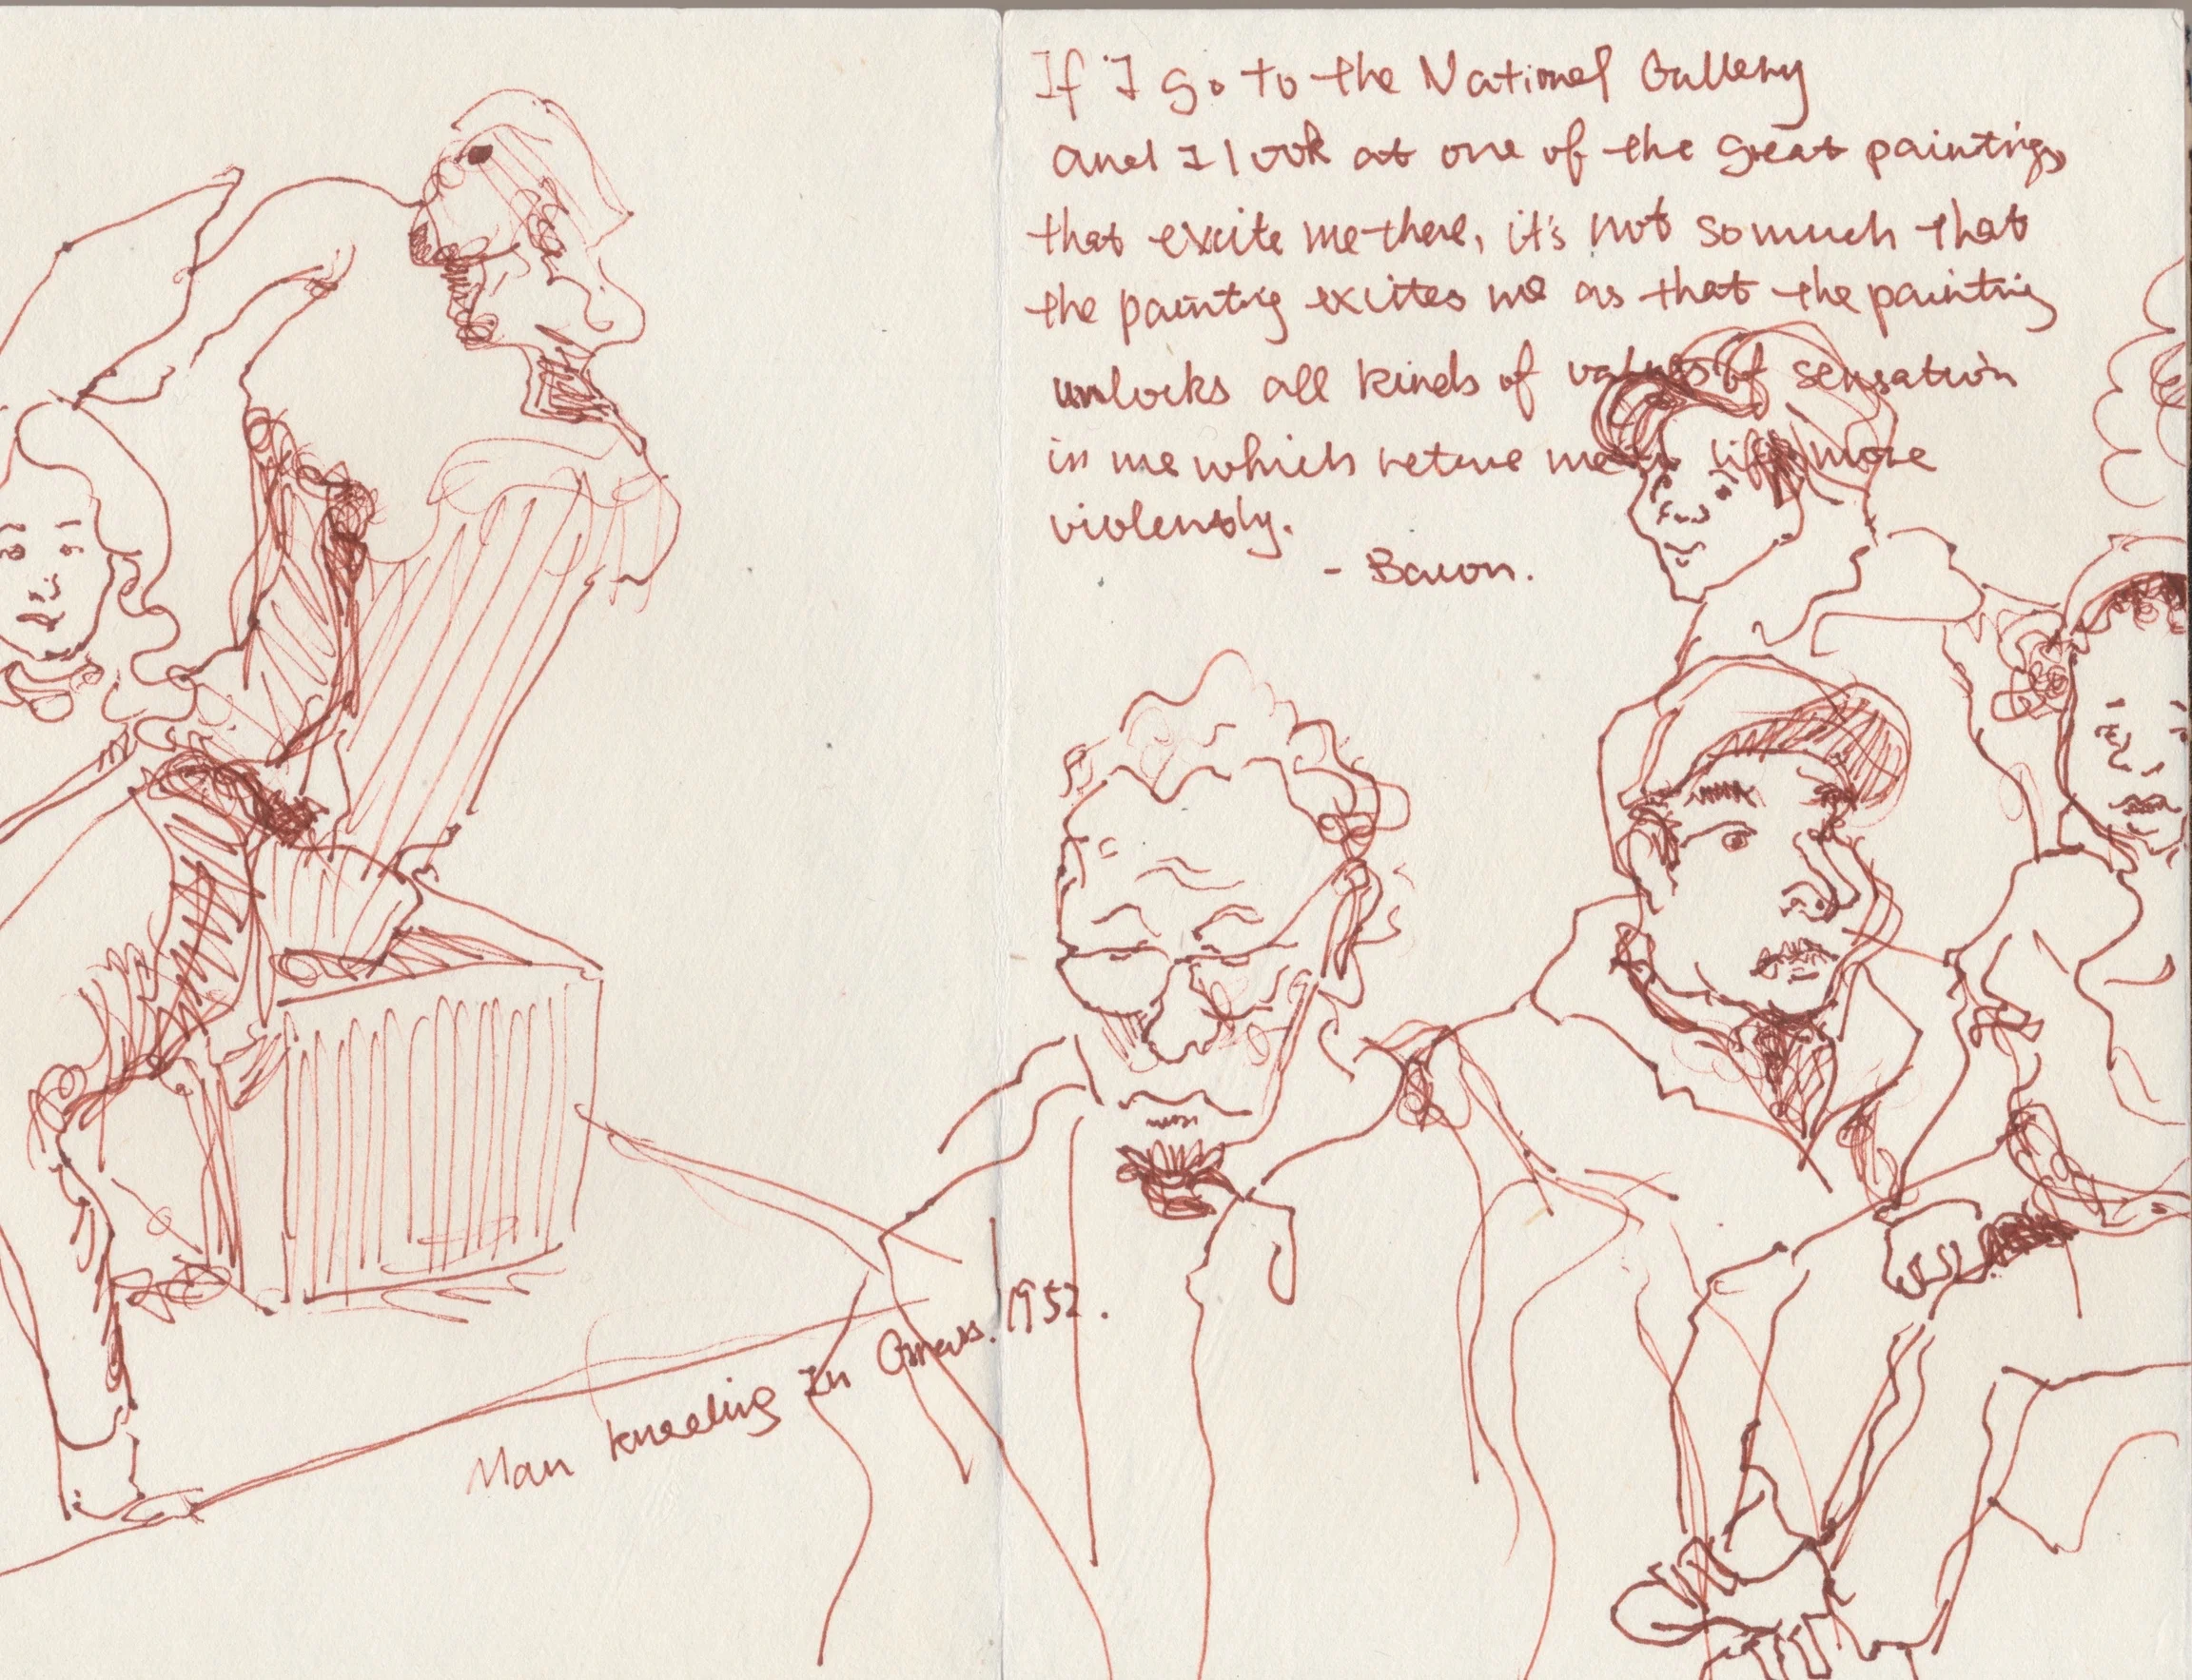 If I go to the National Gallery
and I look at one of the great paintings
that excite me there, it's not so much that
the painting excites me as that the painting
unlocks all kinds of valves of sensation
in me which return me to life more
violently.
- Bacon.
Man kneeling In Grass. 1952.